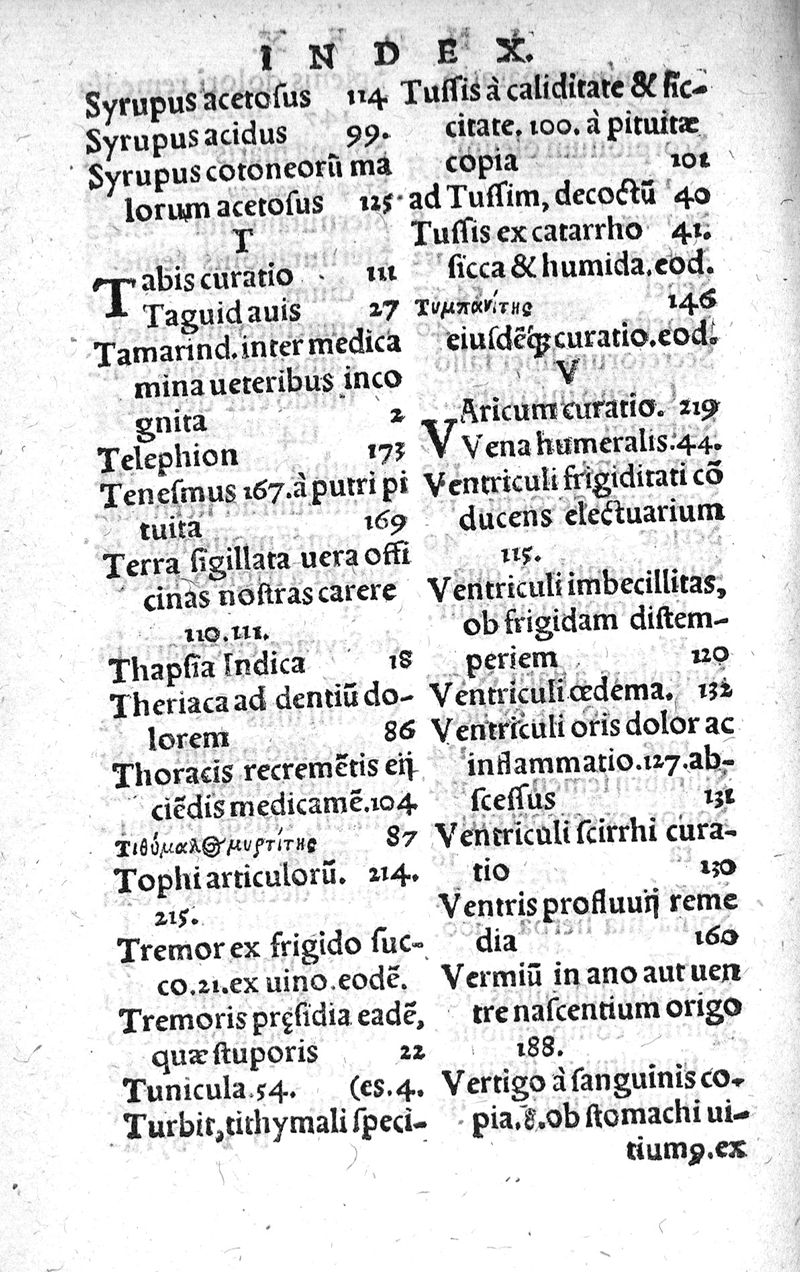 INDEX.
Syrupus acetoſus 114
Syrupus acidus 99.
Syrupus cotoneorũ ma
lorum acetoſus 125
T
Tabis curatio 111
Taguid auis 27
Tamarind. inter medica
mina ueteribus inco
gnita 2
Telephion 173
Teneſmus 167. à putri pi
tuita 169
Terra ſigillata uera offi
cinas noſtras carere
110. 111.
Thapſia Indica 18
Theriaca ad dentiũ do-
lorem 86
Thoracis recremẽtis eij
ciẽdis medicamẽ. 104
Τιθύμαλος μυρτίτης 87
Tophi articulorũ. 214.
215.
Tremor ex frigido ſuc-
co. 21. ex uino. eodẽ.
Tremoris pręſidia eadẽ,
quæ ſtuporis 22
Tunicula. 54. (es. 4.
Turbit, tithymali ſpeci-
Tuſſis à caliditate & ſic-
citate. 100. à pituitæ
copia 101
ad Tuſſim, decoctũ 40
Tuſſis ex catarrho 41.
ſicca & humida. eod.
Τυμπανίτης 146
eiuſdẽq; curatio. eod.
V
VAricum curatio. 219
Vena humeralis. 44.
Ventriculi frigiditati cõ
ducens electuarium
115.
Ventriculi imbecillitas,
ob frigidam diſtem-
periem 120
Ventriculi œdema. 132
Ventriculi oris dolor ac
inflammatio. 127. ab-
ſceſſus 131
Ventriculi ſcirrhi cura-
tio 130
Ventris profluuij reme
dia 160
Vermiũ in ano aut uen
tre naſcentium origo
188.
Vertigo à ſanguinis co-
pia. 8. ob ſtomachi ui-
tium 9. ex